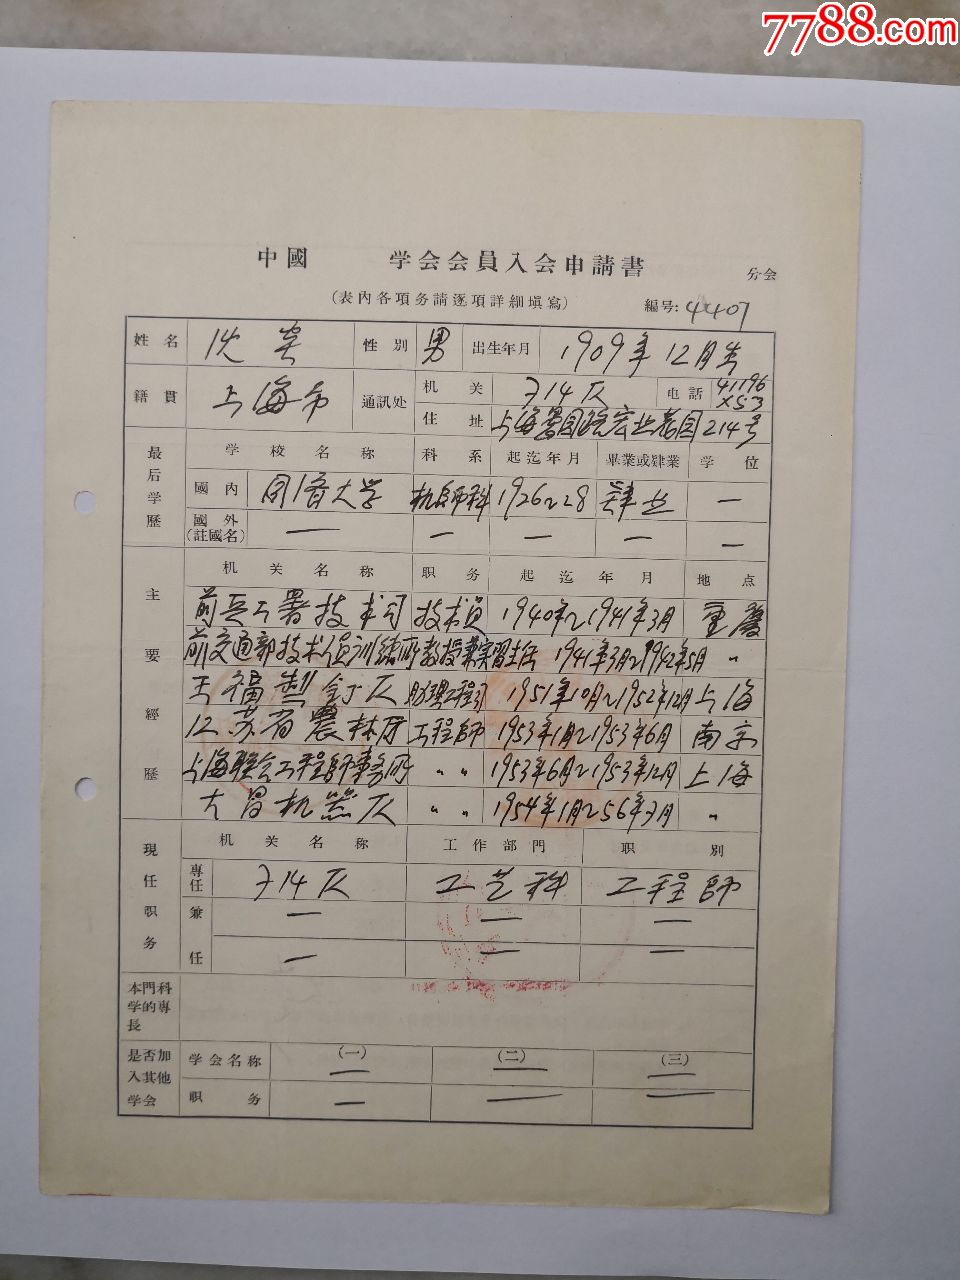 7788.com
中國 学会会員入会申請書 分会
(表內各項务請逐項詳細填寫) 編号: 4407
姓名 沈 性別 男 出生年月 1909年12月生
籍貫 上海市 通訊处 机关 714厂 电話 41196 X53
住址 上海 路宏业花园214号
最后学歷 学校名称 科系 起迄年月 畢業或肄業 学位
國內 同济大学 机师科 1926~28 肄业 —
國外(註國名) — — — — —
主要經歷 机关名称 职务 起迄年月 地点
前兵工署技术司 技术员 1940年~1941年3月 重慶
前交通部技术人員訓練所 教授兼实習主任 1941年3月~1942年5月 〃
王福制釘厂 助理工程师 1951年10月~1952年12月 上海
江苏省農林厅 工程師 1953年1月~1953年6月 南京
上海联合工程師事務所 〃 〃 1953年6月~1953年12月 上海
大昌机器厂 〃 〃 1954年1月~56年3月 〃
現任职务 机关名称 工作部門 职別
專任 714厂 工艺科 工程師
兼任 — — —
— — —
本門科学的專長
是否加入其他学会 学会名称 (一) — (二) — (三) —
职务 — — —